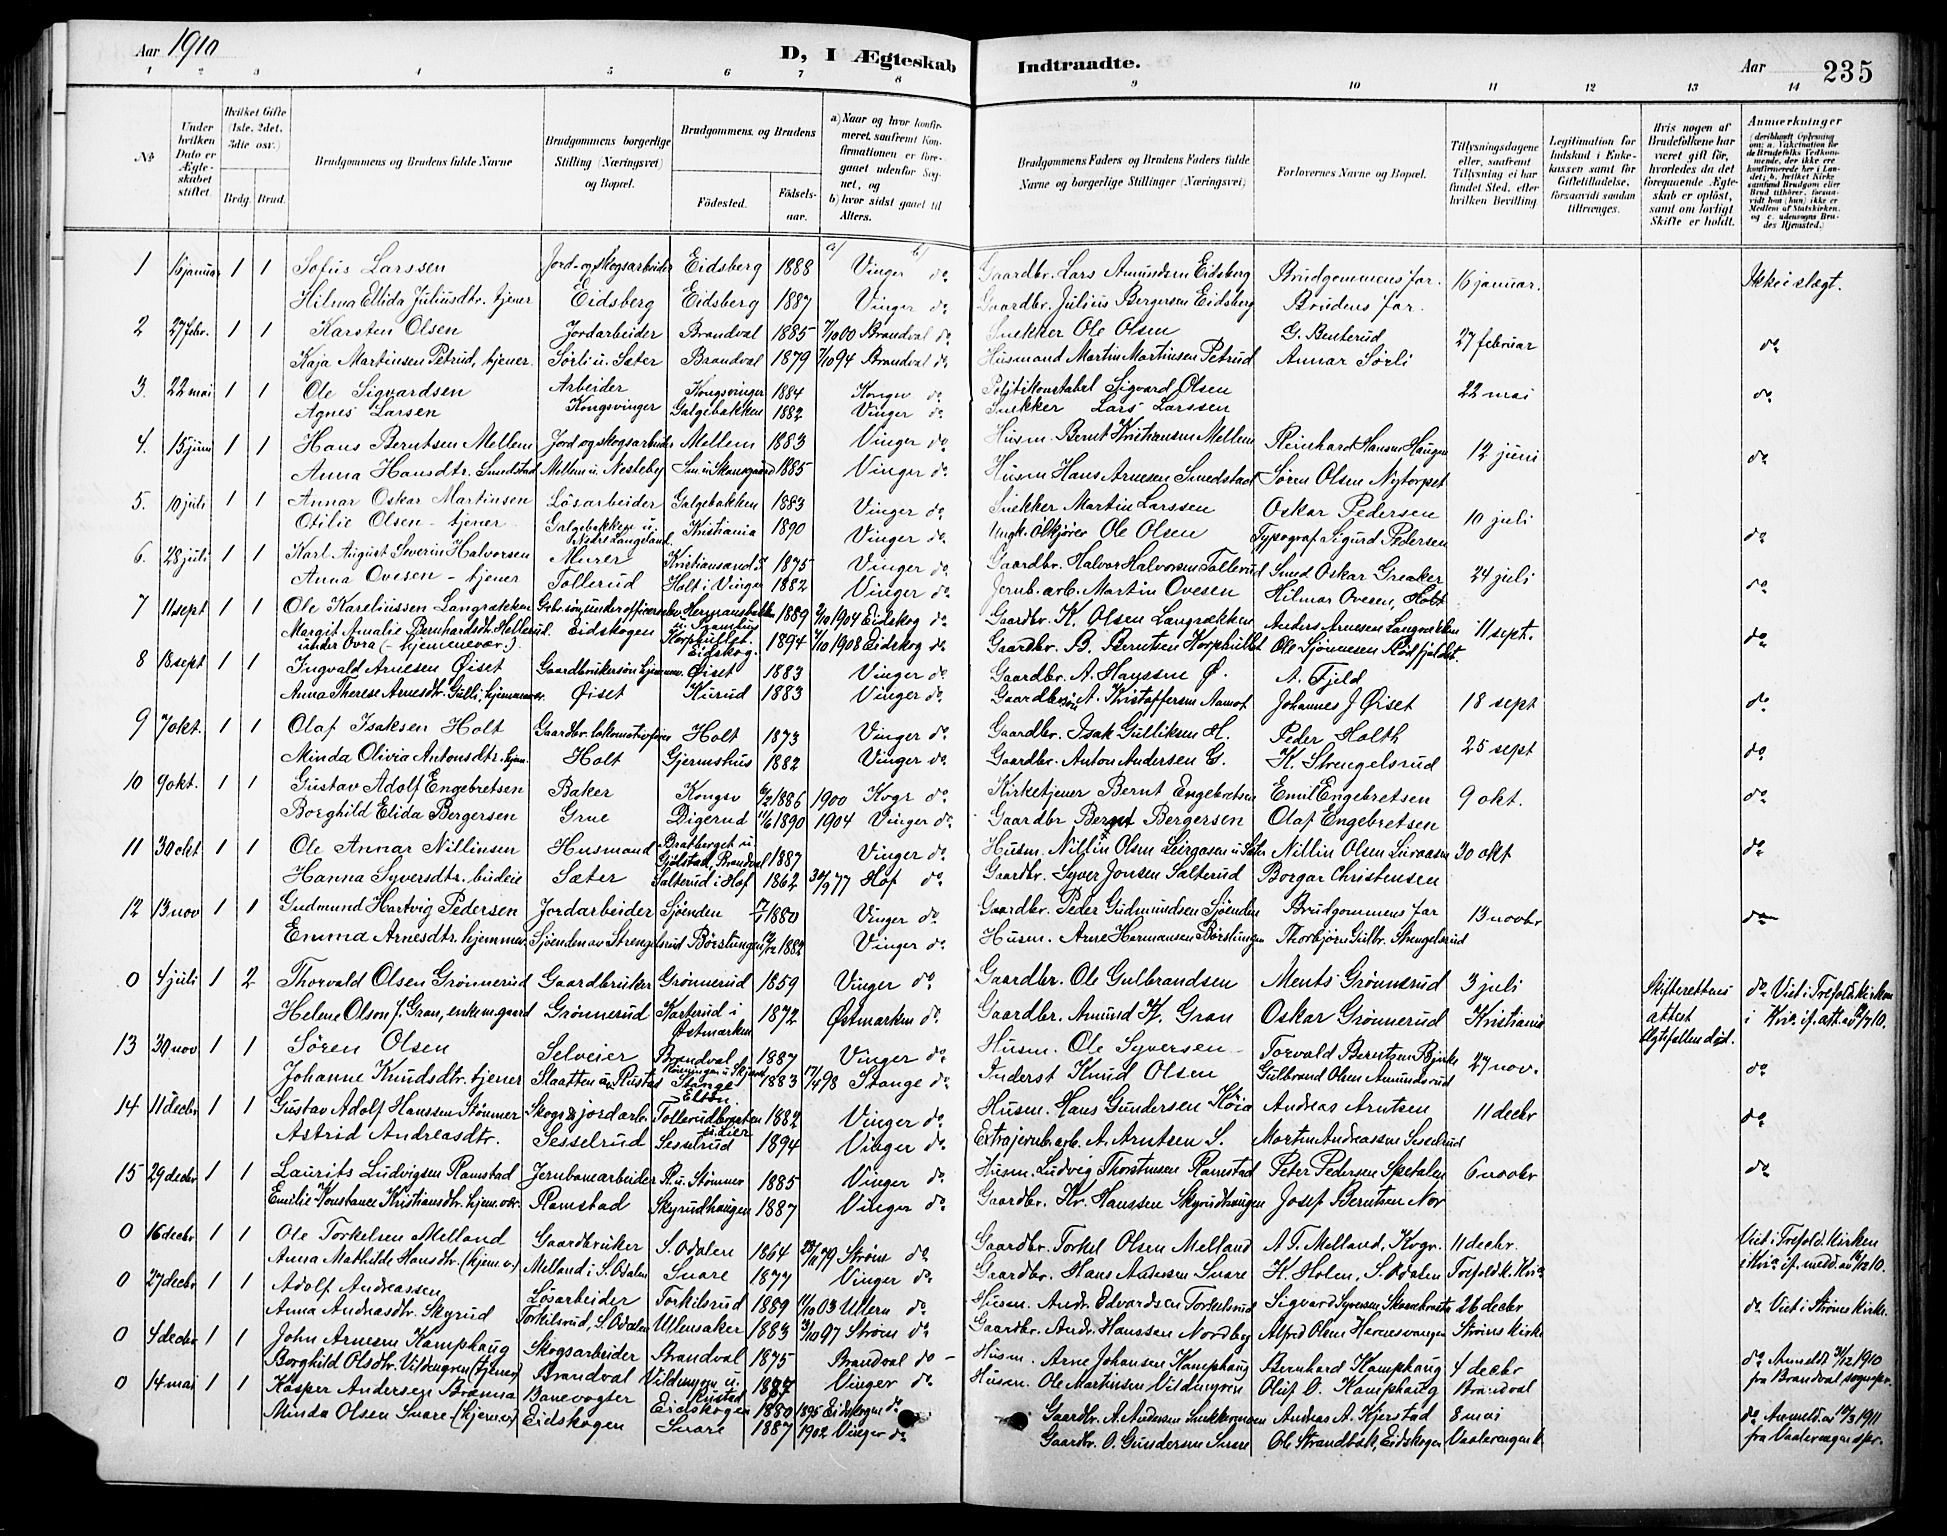 Aar 1910
D, I Ægteskab Indtraadte.
Aar 235
1 2 3 4 5 6 7 8 9 10 11 12 13 14
No
Under hvilken Dato er Ægteskabet stiftet.
Hvilket Gifte (1ste, 2det, 3die osv.)
Brdg. Brud.
Brudgommens og Brudens fulde Navne
Brudgommens borgerlige Stilling (Næringsvei) og Bopæl.
Brudgommens og Brudens
Fødested. Fødselsaar.
a) Naar og hvor konfirmeret, saafremt Konfirmationen er foregaaet udenfor Sognet, og
b) hvor sidst gaaet til Alters.
Brudgommens Faders og Brudens Faders fulde Navne og borgerlige Stillinger (Næringsvei)
Forlovernes Navne og Bopæl.
Tillysningsdagene eller, saafremt Tillysning ei har fundet Sted, efter hvilken Bevilling.
Legitimation for Indskud i Enkekassen samt for Giftetilladelse, forsaavidt saadan tiltrænges.
Hvis nogen af Brudefolkene har været gift før, hvorledes da det foregaaende Ægteskab er opløst, samt om lovligt Skifte er holdt.
Anmærkninger
a) b)
1 16 januar 1 1 Sofus Larssen Jord- og Skogsarbeider Eidsberg 1888 Vinger do Gaardbr. Lars Amundsen Eidsberg Brudgommens far. 16 januar. Ikke i slegt.
Hilma Ellida Juliusdtr. tjener Eidsberg Eidsberg 1887 Vinger do Gaardbr. Julius Bergersen Eidsberg Brudens far.
2 27 febr. 1 1 Karsten Olsen Jordarbeider Brandval 1885 7/10 00 Brandval do Snekker Ole Olsen G. Benterud 27 februar do
Kaja Martinsen Petrud, tjener Sørli u. Sæter Brandval 1879 7/10 94 Brandval do Husmand Martin Martinsen Petrud Annar Sørli
3. 22 mai 1 1 Ole Sigvardsen Arbeider Kongsvinger 1884 Kongsv do Politikonstabel Sigvard Olsen 22 mai do
Agnes Larsen Kongsvinger Galgebakken 1882 Vinger do Snekker Lars Larssen
4. 15 juni 1 1 Hans Berntsen Mellem Jord og skogsarbeider Mellem 1883 Vinger do Husm. Bernt Kristiansen Mellem Reinhard Hansen Haugen 12 juni do
Anna Hansdtr. Smedstad Mellem u. Nesteby 1885 Vinger do Husm Hans Arnesen Smedstad Søren Olsen Nytorpet
5. 10 juli 1 1 Annar Oskar Martinsen Løsarbeider Galgebakken 1883 Vinger do Snekker Martin Larssen Oskar Pedersen 10 juli do
Otilie Olsen - tjener Galgebakken u. Nedre Langeland Kristiania 1890 Vinger do Ungk. ølkjører Ole Olsen Typograf Sigurd Pedersen
6. 28 juli 1 1 Karl August Severin Halvorsen Murer Kristiansand S 1875 Vinger do Gaardbr. Halvor Halvorsen Tollerud Smed Oskar Greaker 24 juli do
Anna Ovesen - tjener Tollerud Holt i Vinger 1882 Vinger do Jernb. arb. Martin Ovesen Hilmar Ovesen, Holt
7 11 sept 1 1 Ole Kareliussen Langrækken 1889 2/10 1904 Eidskog do Gaardbr. K. Olsen Langrækken Anders Arnesen Langrækken 11 sept. do
Margit Amalie Bernhardsdtr. Hollerud under Øvra (- hjemmevær.) Eidskogen Korphullet Eidskog. 1894 4/10 1908 Eidskog do Gaardbr. B. Berntsen Korphullet Ole Sjønnesen Rødfjeldet.
8 18 sept 1 1 Ingvald Arnesen Øiset Gaardbrukersøn hjemmev. Øiset 1883 Vinger do Gaardbr. A. Hanssen Ø. A. Fjeld 18 sept do
Anna Therese Arnesdtr. Gulli, hjemmevær. Øiset Kurud 1883 Vinger do Gaardbr. A. Kristoffersen Aamot Johannes J. Øiset
9 7 okt. 1 1 Olaf Isaksen Holt Gaardbr. lokomotivfører Holt 1873 Vinger do Gaardbr. Isak Gulliksen H. Peder Holth 25 sept do
Minda Olivia Antonsdtr. hjem. Holt Gjermshus 1882 Vinger do Gaardbr. Anton Andersen G. K. Strengelsrud
10 9 okt. 1 1 Gustav Adolf Engebretsen Baker Kongsv 6/2 1886 1900 Kvgr do Kirketjener Bernt Engebretsen Emil Engebretsen 9 okt. do
Borghild Elida Bergersen Grue Digerud 11/6 1890 1904 Vinger do Gaardbr Bernt Bergersen Olaf Engebretsen
11 30 okt 1 1 Ole Annar Nillinsen Husmand Bratberget u. Gjølstad, Brandval 1887 Vinger do Husm. Nillin Olsen Leirgasen u. Sæter Nillin Olsen Leiraasen 30 okt do
Hanna Syversdtr. budeie Sæter Salterud i Hof 1862 30/9 77 Hof do Gaardbr. Syver Jonsen Salterud Borgar Christensen
12 13 nov 1 1 Gudmund Hartvig Pedersen Jordarbeider Sjøenden 7/1 1880 Vinger do Gaardbr. Peder Gudmundsen Sjøenden Brudgommens far 13 novbr do
Emma Arnesdtr. hjemmev. Sjøenden av Strengelsrud Børstungen 17/12 1882 Vinger do Husm. Arne Hermansen Børstungen Thorbjørn Gulbr. Strengelsrud
0 4 juli 1 2 Thorvald Olsen Grønnerud Gaardbruker Grønnerud 1859 Vinger do Gaardbr. Ole Gulbrandsen Ments Grønnerud 3 juli Skifterettens do Viet i Trefold. kirken
Helene Olson f. Gran, enkem. gaard Grønnerud Karterud i Østmarken 1872 Østmarken do Gaardbr. Amund K. Gran Oskar Grønnerud Kristiania attest i Kr.a if. att. av 10.
13 30 nov 1 1 Søren Olsen Selveier Brandval 1887 Vinger do Husm. Ole Syversen Torvald Berntsen Bjerke 27 nov. Egtefællen død. do
Johanne Knudsdtr. tjener Slaatten u. Rustad Stange 1883 17/4 98 Stange do Inderst Knud Olsen Gulbrand Olsen Amundsrud
14 11 decbr 1 1 Gustav Adolf Hanssen Stømmer Skogs & jordarb. Tollerudbraaten u. Lier 1882 Vinger do Husm. Hans Gundersen Køia Andreas Arntsen 11 decbr do
Astrid Andreasdtr. Sesselrud Sesselrud 1894 Vinger do Extrajernb. arb. A. Arntsen S. Morten Andreassen Sesselrud
15 29 decbr 1 1 Laurits Ludvigsen Ramstad Jernbanearbeider R. u. Stømner 1885 Vinger do Husm. Ludvig Thorstensen Ramstad Peter Pedersen Spetalen 6 novbr do
Emilie Konstance Kristiansdtr. hjem. vær. Ramstad Skyrudhaugen 1887 Vinger do Gaardbr. Kr. Hanssen Skyrudhaugen Josef Berntsen Nor
0 16 decbr 1 1 Ole Torkelsen Melland Gaardbruker S. Odalen 1864 28/10 79 Strøm do Gaardbr. Torkel Olsen Melland A. T. Melland, Kvgr. 11 decbr. Viet i Trefold. kirken
Anna Mathilde Hansdtr. (hjem. v.) Melland i S. Odalen Snare 1877 Vinger do Gaardbr. Hans Andersen Snare H. Holen, S. Odalen Trefoldk. Kr.a i Kr.a if. medd. av 16/12 10.
0 27 decbr 1 1 Adolf Andreassen Løsarbeider Torkilsrud 1889 11/10 03 Ullern do Husm. Andr. Edvardsen Torkelsrud Sigvard Syversen 26 decbr do Viet i Strøms kirke
Anna Andreasdtr. Skyrud Torkilsrud, S. Odalen Ullensaker 1883 3/10 97 Strøm do Gaardbr. Andr. Hanssen Nordby Alfred Olsen Hernesvangen Strøms kirke
0 4 decbr 1 1 John Arnesen Kamphaug Skogsarbeider Brandval 1875 Brandval do Husm. Arne Johansen Kamphaug Bernhard Kamphaug 4 decbr do Anmeldt 31/12 1910
Borghild Olsdtr. Vildengren (tjener) Brandval Vildengren u. Rustad 1887 Vinger do Husm. Ole Martinsen Vildengren Oluf O. Kamphaug Brandval fra Brandval sognepr.
0 14 mai 1 1 Kasper Andersen Brænna Banevogter Eidskogen 1880 1895 Eidskogen do Gaardbr. A. Andersen Andreas A. Kjerstad 8 mai do Anmeld. av 14/3 1911
Minda Olsen Snare (hjemv.) Eidskogen Snare 1887 1902 Vinger do Gaardbr. O. Gundersen Snare Ole Strandbak, Eidskogen Vaalerengen k. fra Vaalerengen spr.